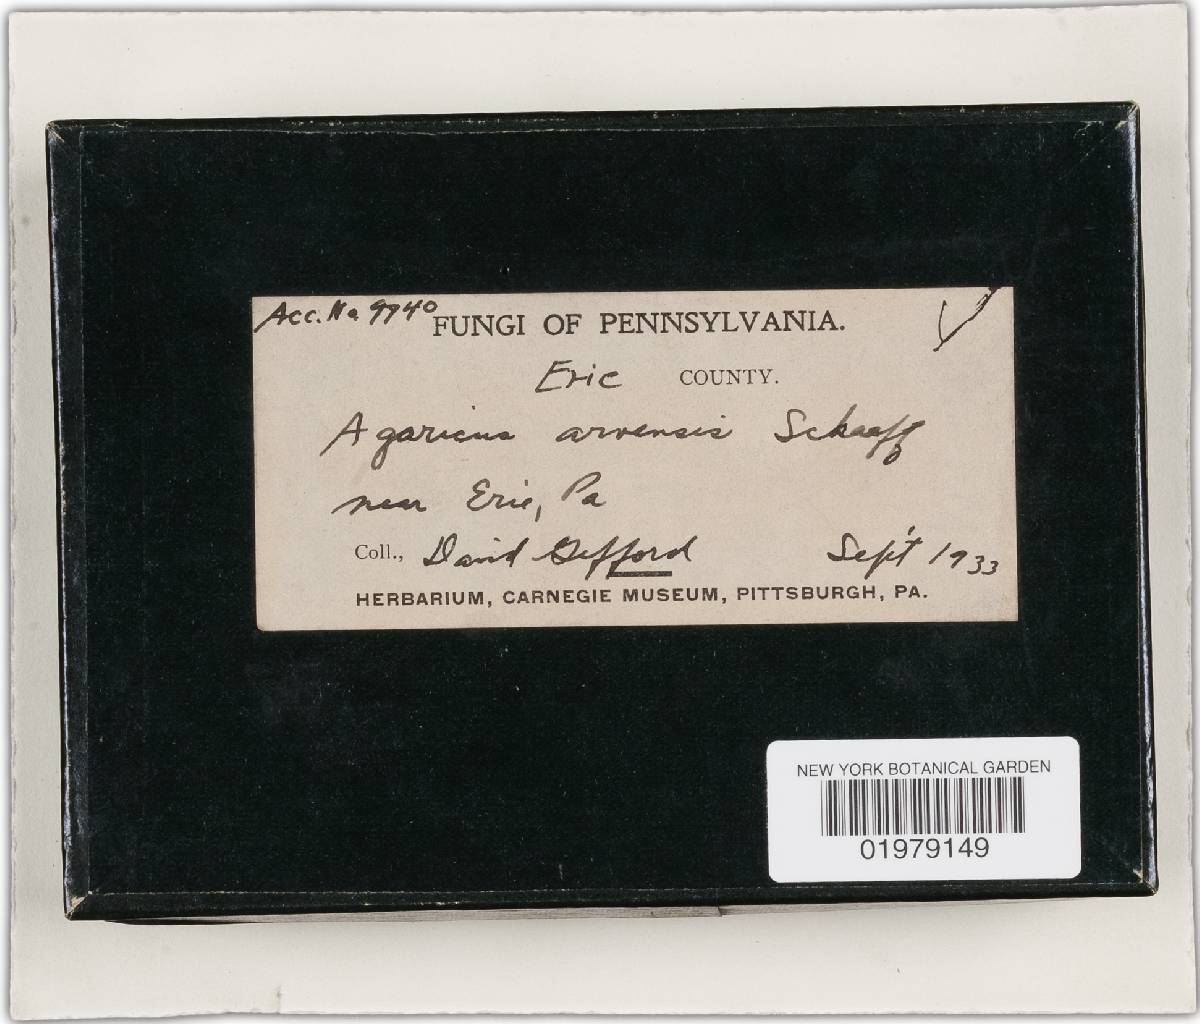 Acc. No. 9740
FUNGI OF PENNSYLVANIA.
Erie COUNTY.
Agaricus arvensis Schaeff
near Erie, Pa
Coll., David Gefford Sept 1933
HERBARIUM, CARNEGIE MUSEUM, PITTSBURGH, PA.
NEW YORK BOTANICAL GARDEN
01979149